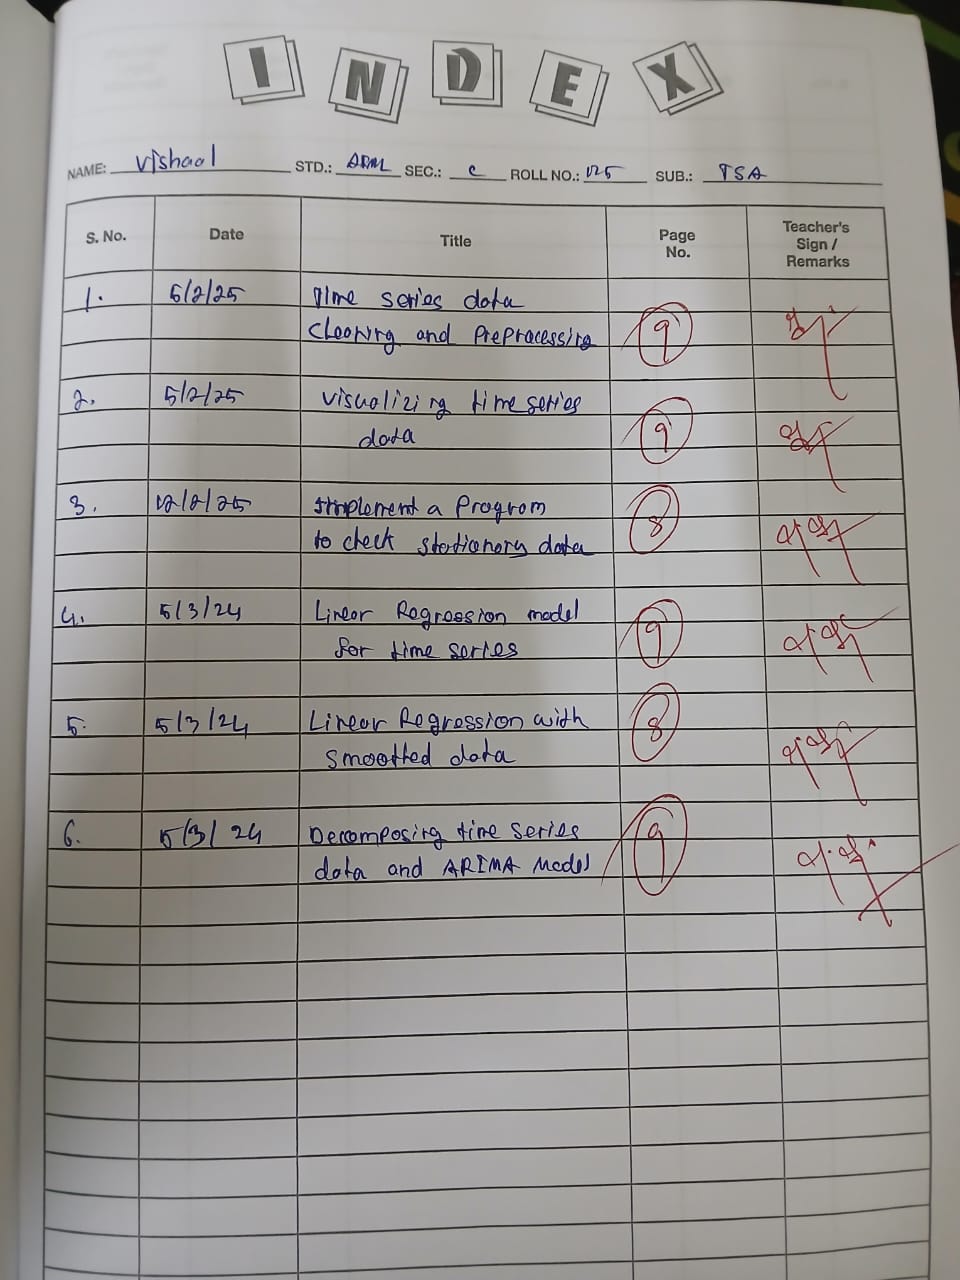 INDEX
NAME: Vishaal STD.: ADML SEC.: C ROLL NO.: 125 SUB.: TSA
S. No. Date Title Page No. Teacher's Sign / Remarks
1. 5/2/25 Time series data
cleaning and Preprocessing 9
2. 5/2/25 visualizing time series
data 9
3. 12/2/25 Implement a Program 8
to check stationary data
4. 5/3/24 Linear Regression model
for time series 9
5. 5/3/24 Linear Regression with 8
smootted data
6. 5/3/24 Decomposing time series 9
data and ARIMA Model